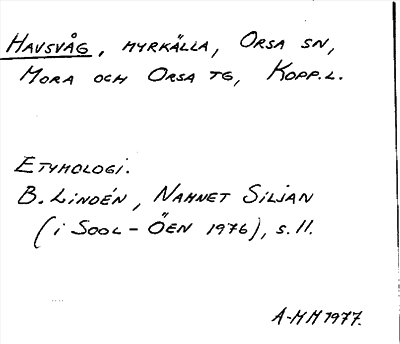 HAVSVÅG, MYRKÄLLA, ORSA SN,
MORA OCH ORSA TG, KOPP.L.
ETYMOLOGI.
B. LINDÉN, NAMNET SILJAN
(i SOOL-ÖEN 1976), s. 11.
A-MM 1977.